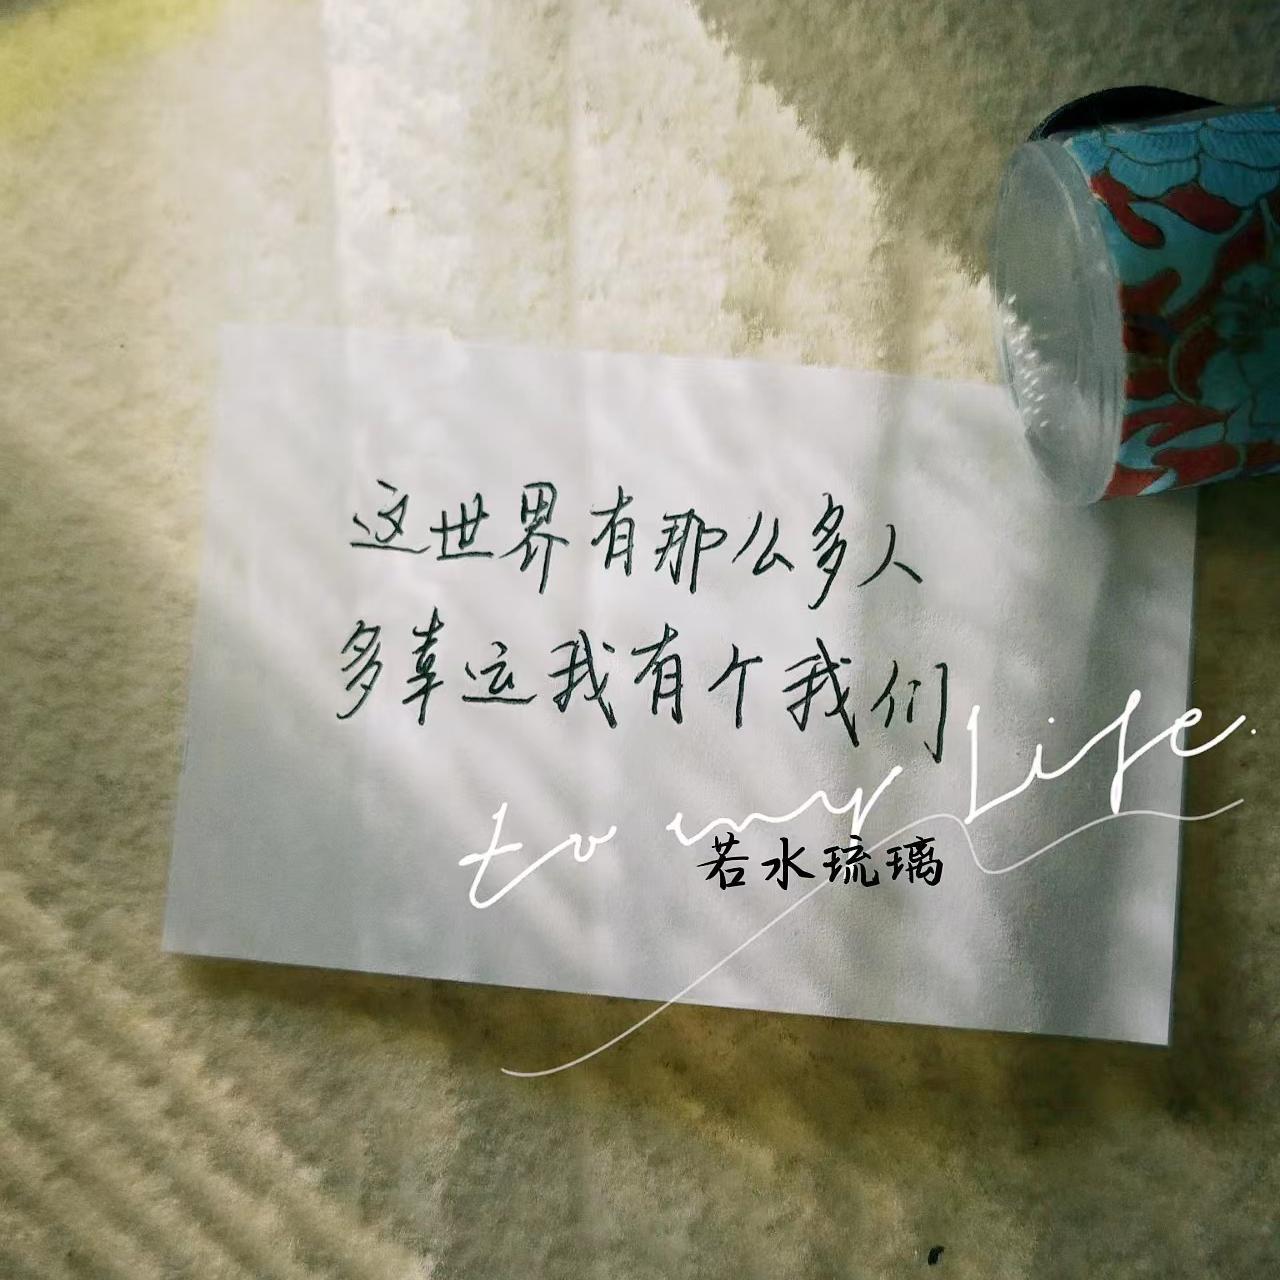 这世界有那么多人
多幸运我有个我们
to my Life.
若水琉璃